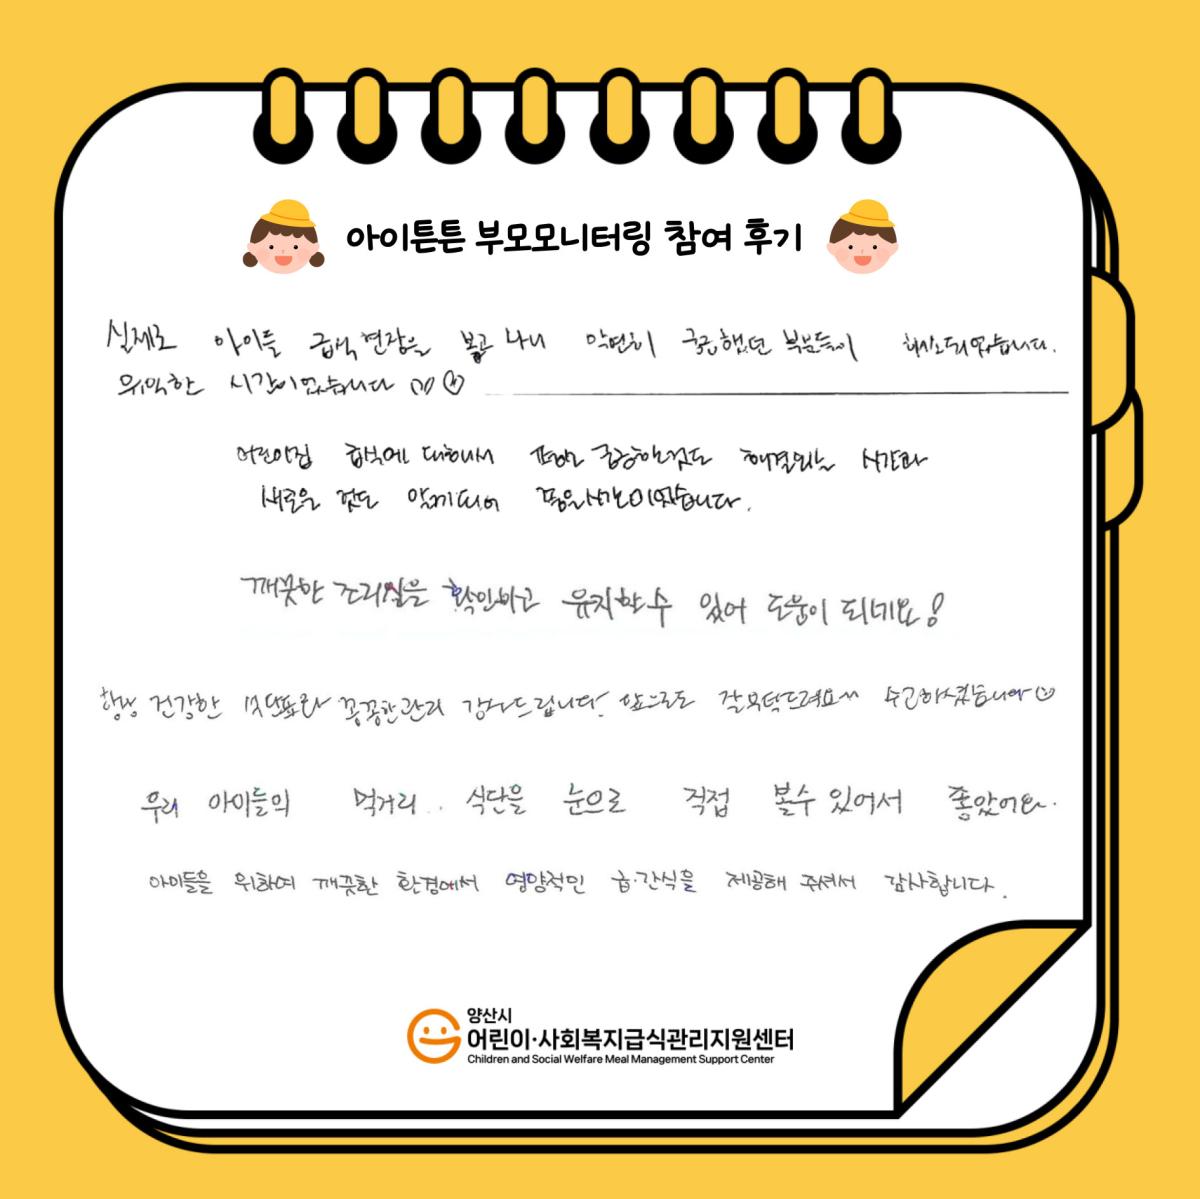 아이튼튼 부모모니터링 참여 후기
실제로 아이들 급식 현장을 보고 나니 막연히 궁금했던 부분들이 해소되었습니다.
유익한 시간이었습니다 ♡
어린이집 급식에 대해서 평소 궁금한것도 해결되는 시간과
새로운 것도 알게되어 좋은시간이었습니다.
깨끗한 조리실을 확인하고 유지할수 있어 도움이 되네요!
항상 건강한 식단표와 꼼꼼한관리 감사드립니다! 앞으로도 잘부탁드려요^^ 수고하셨습니다☺
우리 아이들의 먹거리.. 식단을 눈으로 직접 볼수 있어서 좋았어요.
아이들을 위하여 깨끗한 환경에서 영양적인 급·간식을 제공해 주셔서 감사합니다.
양산시
어린이·사회복지급식관리지원센터
Children and Social Welfare Meal Management Support Center